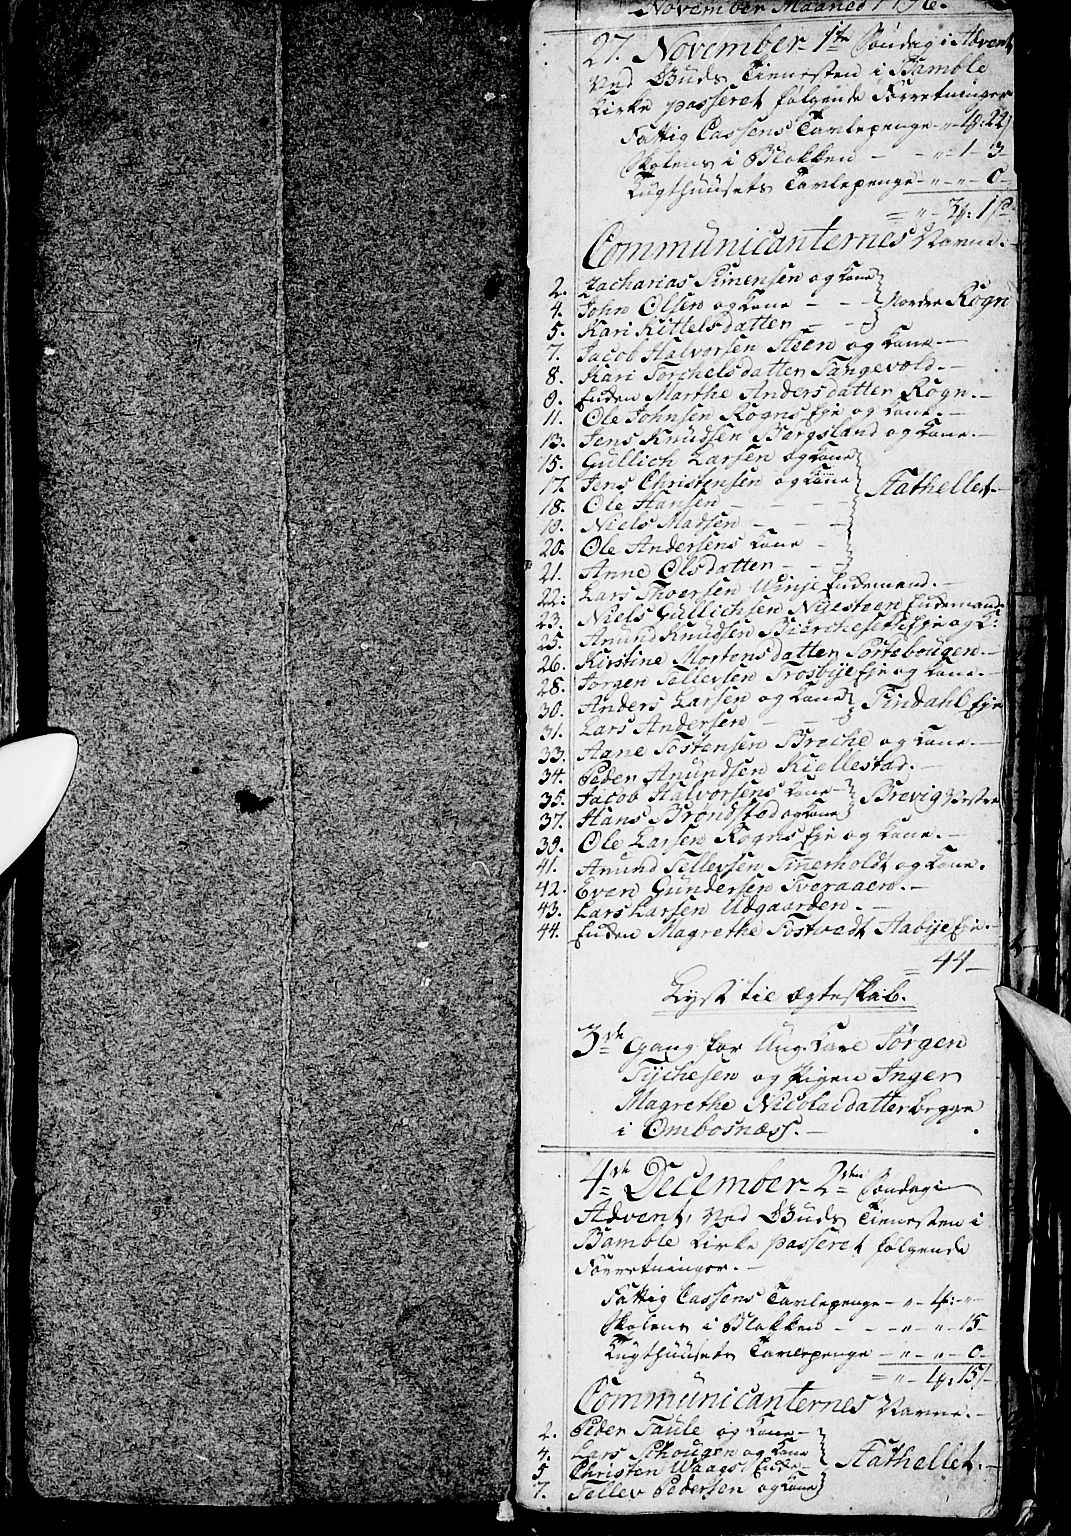 November Maaned 1796.
27. November 1te Søndag i Advent
Ved Guds Tienesten i Bamble
Kirke passeret følgende Forretninger
Fattig Cassens Tavlepenge
Skolens i Blokken - - „ 1 - 3 -
Tugthuusets Tavlepenge - „ - „ - 0 -
Communicanternes Navne. -
2. Zacharias Simensen og Kone
4. John Olsen og Kone - - - Nordre Rogn
5. Kari Kittelsdatten - -
7. Jacob Halvorsen Steen og Kone -
8. Kari Torchelsdatten Tangevold. -
9. Enken Marthe Andersdatten Rogn. -
11. Ole Johnsen Rogns Eje og Kone. -
13. Jens Knudsen Bergsland og Kone. -
15. Gullich Larsen og Kone
17. Jens Christensen og Kone Stathellet -
18. Ole Hansen - - -
19. Niels Madsen - - -
20. Ole Andersens Kone -
21. Anne Olsdatten - - -
22. Lars Thorsen Winje Enkemand. -
23. Niels Gullichsen Nuesteen Enkemand
25. Anund Knudsen Bierchesett Eje og K:
26. Kirstine Mortensdatten Portebougen. -
28. Jørgen Tellevsen Trosbye Eje og Kone. -
30. Anders Larsen og Kone Findahl Eje
31. Lars Andersen - - -
33. Aane Tostensen Breche og Kone. -
34. Peder Anundsen Kiellestad. -
35. Jacob Halvorsens Kone - Brevig Vestre
37. Hans Brøndstad og Kone
39. Ole Larsen Rogns Eje og Kone. -
41. Anund Tellevsen Tinerholdt og Kone.
42. Even Gundersen Tveraaen. -
43. Lars Larsen Udgaarden. -
44. Enken Magrethe Tostvedt Aabye Eje. -
= 44 -
Lyst til Ægteskab.
3de Gang for Ung Karl Jørgen
Tychesen og Pigen Inger
Magrethe Nicolaidatter begge
i Ombosnæss. -
4de December - 2den Søndag i
Advent, Ved Guds Tienesten i
Bamble Kirke passeret følgende
Forretninger. -
Fattig Cassens Tavlepenge - „ - 4: - „ -
Skolens i Blokken - - - „ - „ - 15 -
Tugthuusets Tavlepenge - „ - „ - 0 -
= „ - 4: 15 -
Communicanternes Navne. -
2. Peder Taule og Kone -
4. Lars Schougen og Kone
5. Christen Waags Enke - Stathellet. -
7. Tellev Pedersen og Kone